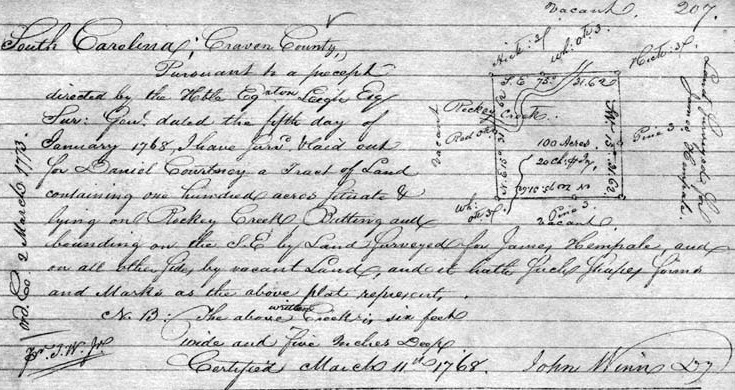 Vacant 207.
South Carolina, Craven County,
Pursuant to a precept
directed by the Hble Egaton Leigh Esq
Sur: Genl. dated the fifth day of
January 1768, I have Surv. & laid out
for Daniel Courtney a Tract of Land
containing one hundred acres Situate &
lying on Rockey Creek Butting and
bounding on the S.E by Land Surveyed for James Hemphale and
on all other Sides by vacant Land, and it hath Such Shapes forms
and Marks as the above plat represent,
N. B: The above written Creek is six feet
wide and five Inches Deep
Certified March 11th 1768. John Winn DS
ord. Co. 2 March 1773.
Hick: 3X
Wh: ok 3.
Hick: 3X
S. E 75° 31.62
Rockey Creek
Red ok
Vacant
N. E 15° 31.62
100 Acres
20 Ch: P In
SW 15° 31.62
Pine 3.
Land Surveyed for
James Hemphale
Wh: ok 3X
Pine 3.
Vacant